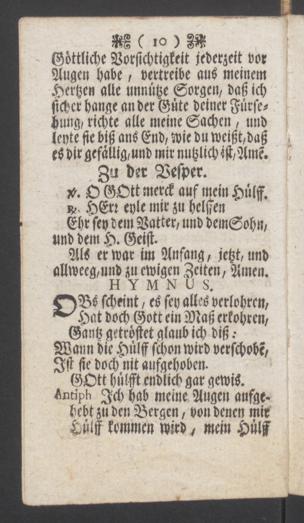 ( 10 )
Göttliche Vorsichtigkeit jederzeit vor
Augen habe, vertreibe aus meinem
Hertzen alle unnütze Sorgen, daß ich
sicher hange an der Güte deiner Fürse-
hung, richte alle meine Sachen, und
leyte sie biß ans End, wie du weißt, daß
es dir gefällig, und mir nutzlich ist, Amē.
Zu der Vesper.
℣. O GOtt merck auf mein Hülff.
℟. HErr eyle mir zu helffen
Ehr sey dem Vatter, und dem Sohn,
und dem H. Geist.
Als er war im Anfang, jetzt, und
allweeg, und zu ewigen Zeiten, Amen.
HYMNUS.
OBs scheint, es sey alles verlohren,
Hat doch Gott ein Maß erkohren,
Gantz getröstet glaub ich diß:
Wann die Hülff schon wird verschobē,
Ist sie doch nit aufgehoben.
GOtt hülfft endlich gar gewis.
Antiph Ich hab meine Augen aufge-
hebt zu den Bergen, von denen mir
Hülff kommen wird, mein Hülff